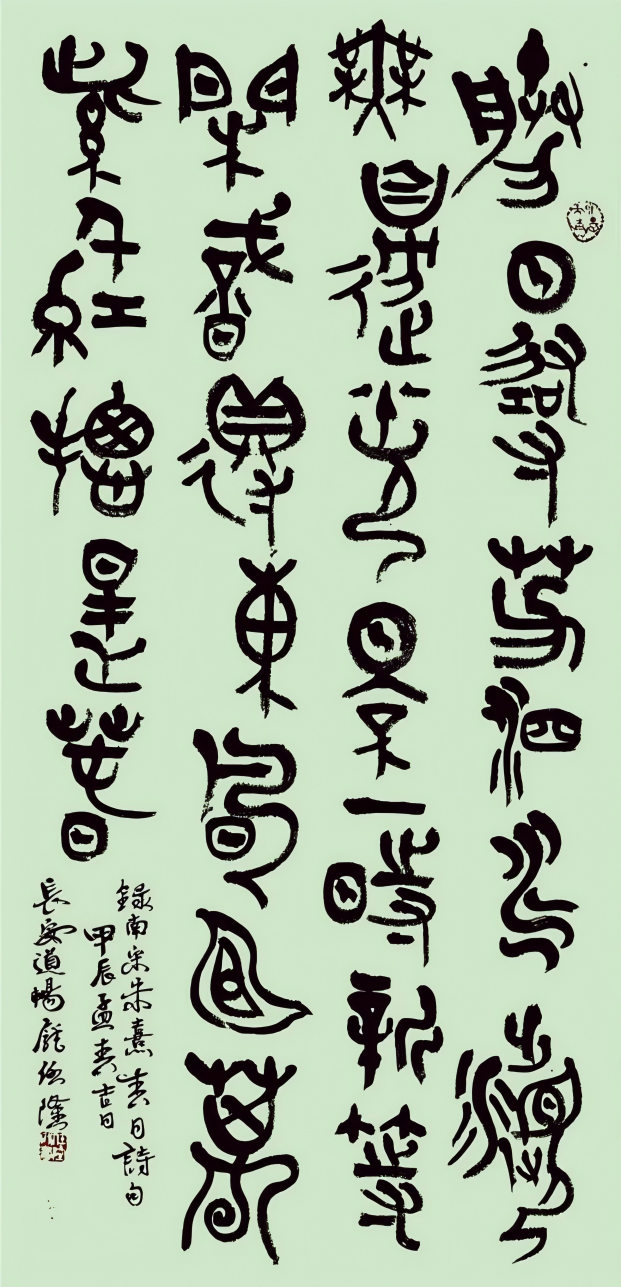 勝日尋芳泗水濱
無邊光景一時新等
閒識得東風面萬
紫千紅摠是春
録南宋朱熹春日詩句
甲辰孟春吉日
長安道暢龐任隆